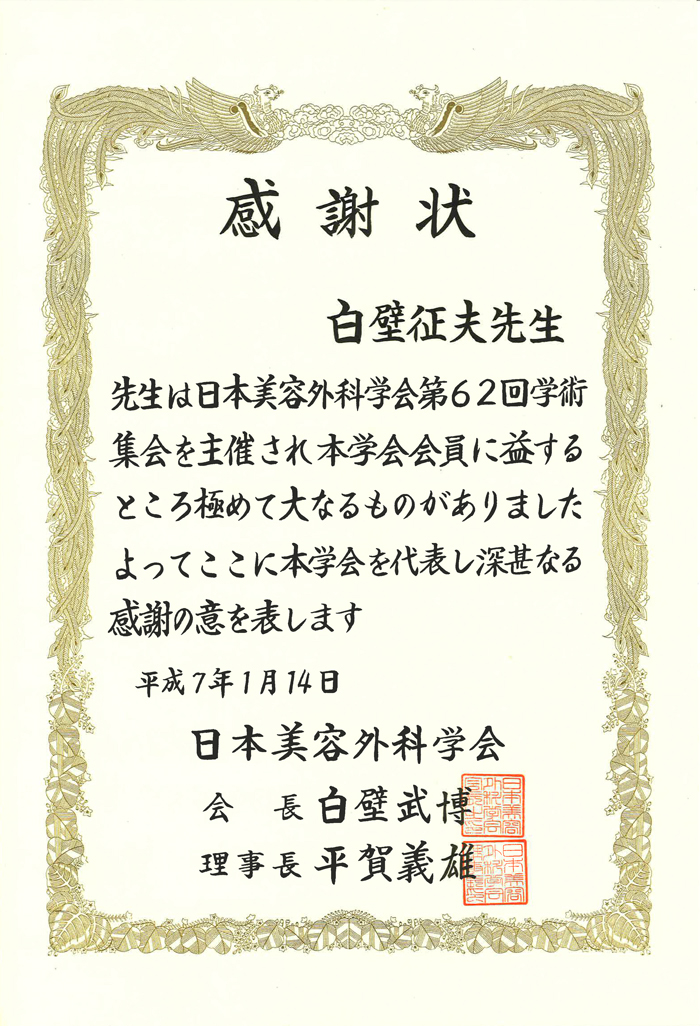 感謝状
白壁征夫先生
先生は日本美容外科学会第62回学術
集会を主催され本学会会員に益する
ところ極めて大なるものがありました
よってここに本学会を代表し深甚なる
感謝の意を表します
平成7年1月14日
日本美容外科学会
会長 白壁武博
理事長 平賀義雄